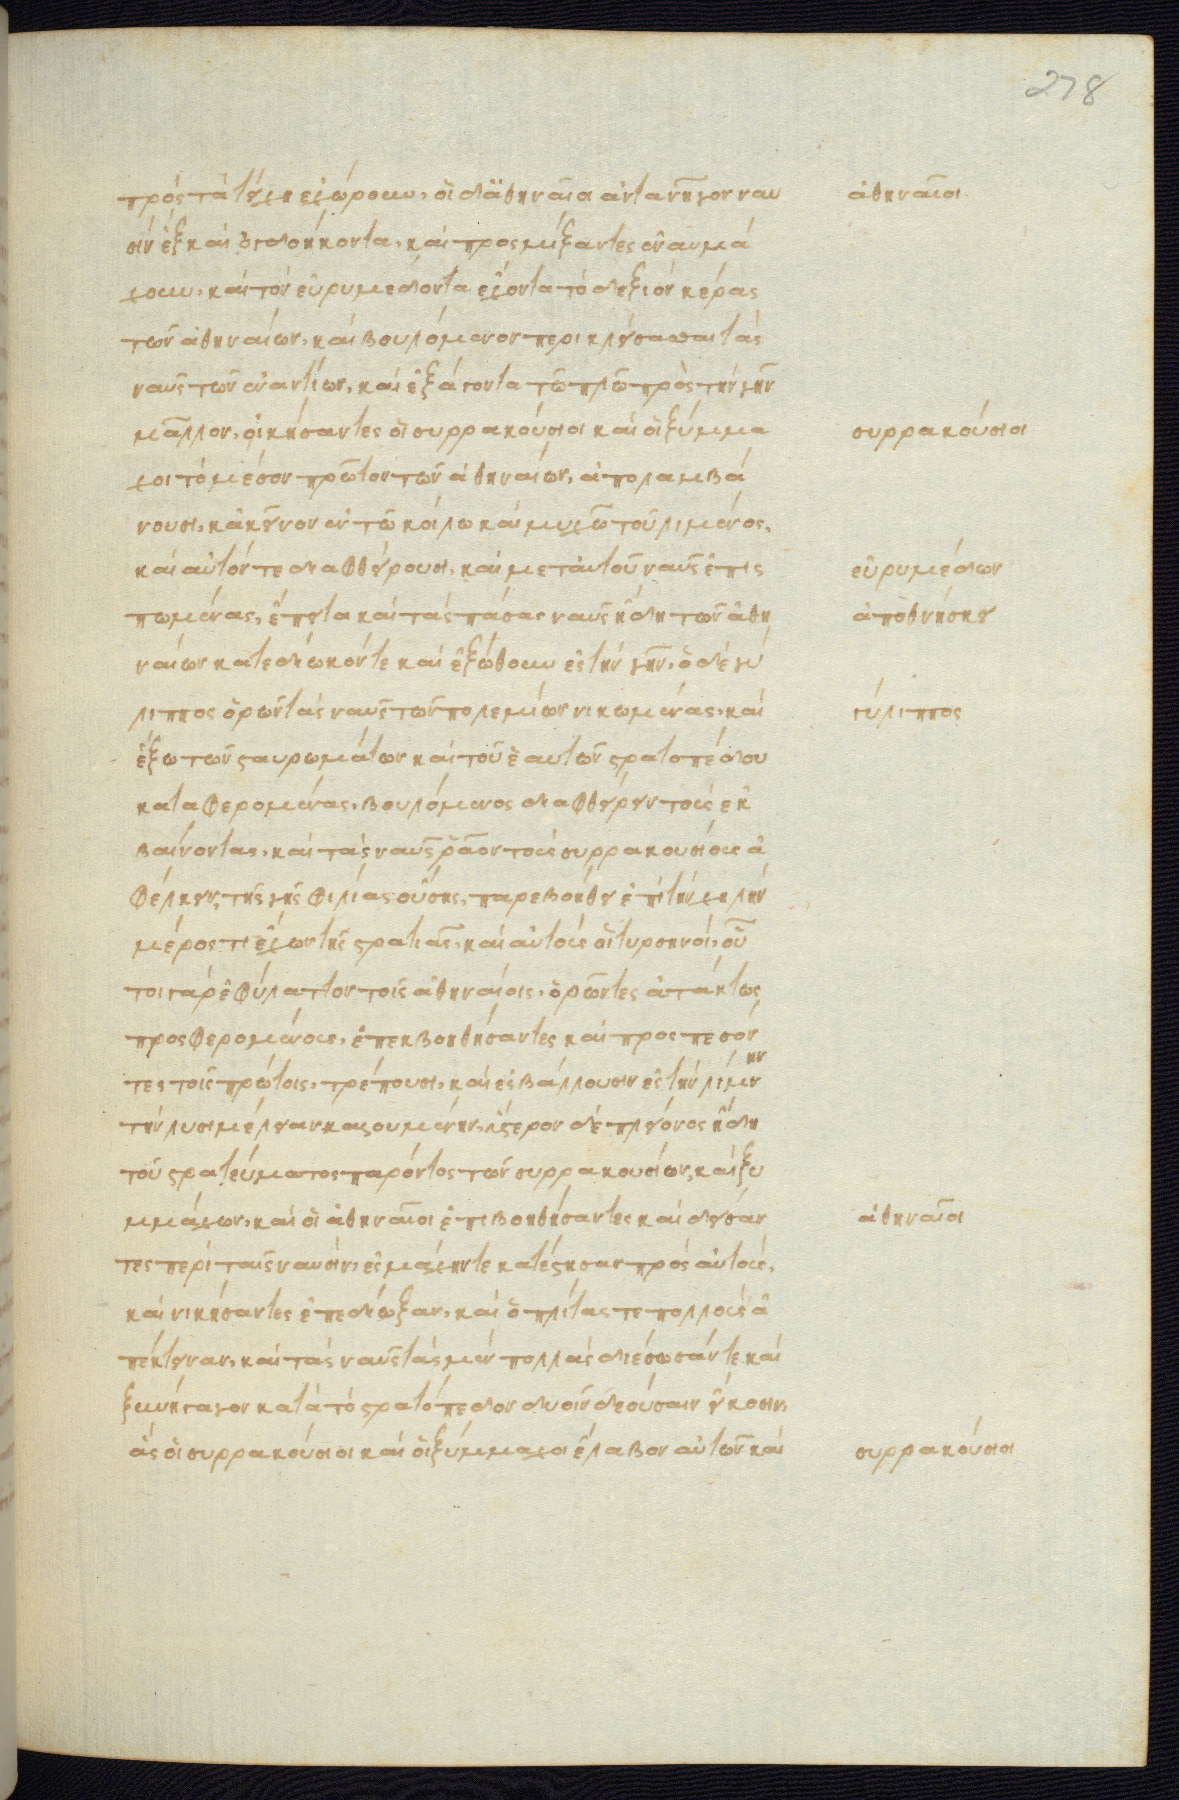 278
πρὸς τὰ τείχη ἐχώρουν, οἱ δ' ἀθηναῖοι ἀντανῆγον ναυ
ἀθηναῖοι
σὶν ἓξ καὶ ὀγδοήκοντα, καὶ προσμίξαντες ἐναυμά
χουν, καὶ τὸν εὐρυμέδοντα ἔχοντα τὸ δεξιὸν κέρας
τῶν ἀθηναίων, καὶ βουλόμενον περικλείσασθαι τὰς
ναῦς τῶν ἐναντίων, καὶ ἐξάγοντα τῶ πλῶ πρὸς τὴν γῆν
μᾶλλον, νικήσαντες οἱ συρρακούσιοι καὶ οἱ ξύμμα
συρρακούσιοι
χοι τὸ μέσον πρῶτον τῶν ἀθηναίων, ἀπολαμβά
νουσι, κἀκεῖνον ἐν τῶ κοίλω καὶ μυχῶ τοῦ λιμένος,
καὶ αὐτόν τε διαφθείρουσι, καὶ μετ' αὐτοῦ ναῦς ἐπις
εὐρυμέδων
πωμένας, ἔπειτα καὶ τὰς πάσας ναῦς ἤδη τῶν ἀθη
ἀποθνήσκει
ναίων κατεδίωκόν τε καὶ ἐξώθουν ἐς τὴν γῆν, ὁ δὲ γύ
λιππος ὁρῶν τὰς ναῦς τῶν πολεμίων νικωμένας, καὶ
γύλιππος
ἔξω τῶν σταυρωμάτων καὶ τοῦ ἑαυτῶν στρατοπέδου
καταφερομένας, βουλόμενος διαφθείρειν τοὺς ἐκ
βαίνοντας, καὶ τὰς ναῦς ῥᾷον τοὺς συρρακουσίους ἀ
φέλκειν, τῆς γῆς φιλίας οὔσης, παρεβοήθει ἐπὶ τὴν χηλὴν
μέρος τι ἔχων τῆς στρατιᾶς, καὶ αὐτοὺς οἱ τυρσηνοὶ, οὗ
τοι γὰρ ἐφύλαττον τοῖς ἀθηναίοις, ὁρῶντες ἀτάκτως
προσφερομένους, ἐπεκβοηθήσαντες καὶ προσπεσόν
τες τοῖς πρώτοις, τρέπουσι, καὶ ἐσβάλλουσιν ἐς τὴν λίμνην
τὴν λυσιμέλειαν καλουμένην, ὕστερον δὲ πλείονος ἤδη
τοῦ στρατεύματος παρόντος τῶν συρρακουσίων, καὶ ξυ
μμάχων, καὶ οἱ ἀθηναῖοι ἐπιβοηθήσαντες καὶ δείσαν
ἀθηναῖοι
τες περὶ ταῖς ναυσὶν, ἐς μάχην τε κατέστησαν πρὸς αὐτοὺς,
καὶ νικήσαντες ἐπεδίωξαν, καὶ ὁπλίτας τε πολλοὺς ἀ
πέκτειναν, καὶ τὰς ναῦς τὰς μὲν πολλὰς διέσωσάν τε καὶ
ξυνήγαγον κατὰ τὸ στρατόπεδον δυοῖν δεούσαιν εἴκοσιν,
ἃς οἱ συρρακούσιοι καὶ οἱ ξύμμαχοι ἔλαβον αὐτῶν καὶ
συρρακούσιοι